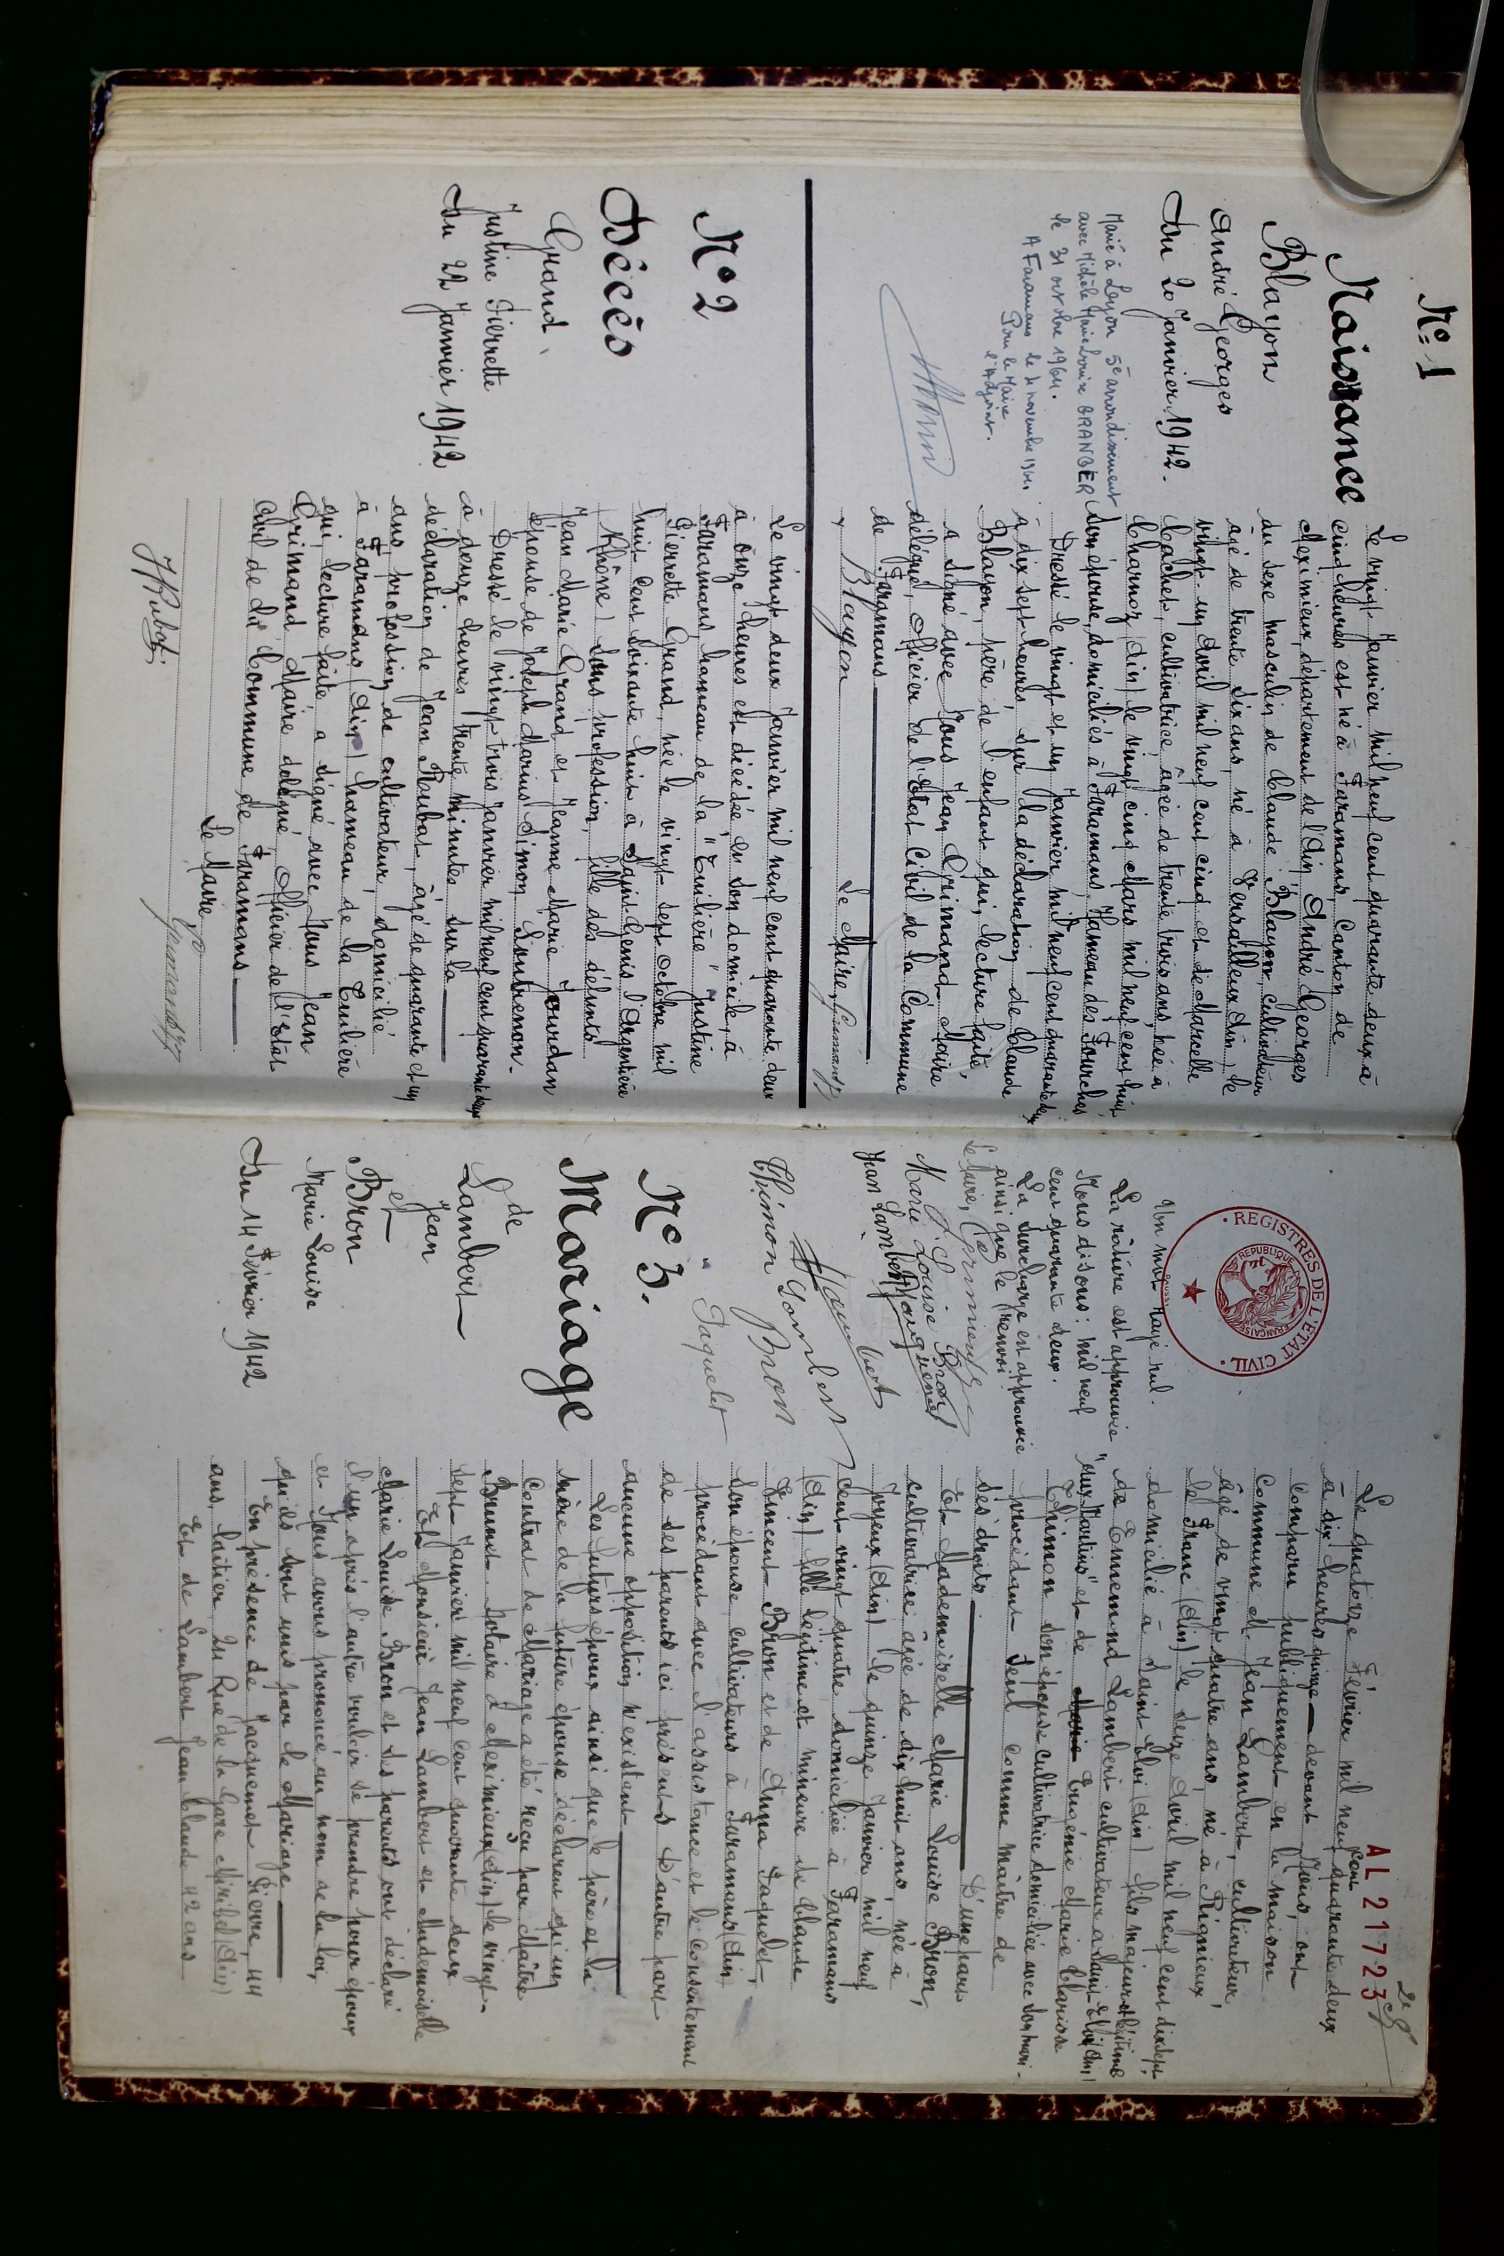 N° 1
Naissance
Blayon
André Georges
Du 20 Janvier 1942.
Marié à Lyon 5e arrondissement
avec Michèle Marie Louise BRANGER
le 31 octobre 1964.
A Faramans le 4 novembre 1964
Pour le Maire
l'Adjoint.
Le vingt Janvier mil neuf cent quarante deux à
cinq heures est né à Faramans, Canton de
Meximieux, département de l'Ain, André Georges
du sexe masculin de Claude Blayon, cultivateur
âgé de trente six ans, né à Versailleux Ain, le
vingt un Avril mil neuf cent cinq et de Marcelle
Cachet, cultivatrice, âgée de trente trois ans, née à
Charnoz (Ain) le vingt cinq Mars mil neuf cent huit,
son épouse, domiciliés à Faramans, Hameau des Fourches
Dressé le vingt et un Janvier mil neuf cent quarante deux
à dix sept heures, sur la déclaration de Claude
Blayon, père de l'enfant qui, lecture faite,
a signé avec Nous Jean Grimand Maire
délégué, Officier de l'Etat Civil de la Commune
de Faramans
Blayon Le Maire, Grimand
N° 2
Décès
Grand,
Justine Pierrette
Du 22 Janvier 1942
Le vingt deux Janvier mil neuf cent quarante deux
à onze heures est décédée, en son domicile, à
Faramans, hameau de la "Tuilière" Justine
Pierrette Grand, née le vingt-sept octobre mil
huit cent soixante huit à Saint Genis l'Argentière
(Rhône) sans profession, fille des défunts
Jean Marie Grand et Jeanne Marie Jourdan
épouse de Joseph Marius Simon
Dressé le vingt-trois Janvier mil neuf cent quarante deux
à douze heures trente minutes sur la
déclaration de Jean Roubat, âgé de quarante et un
ans, profession de cultivateur, domicilié
à Faramans (Ain) hameau de la Tuilière
qui, lecture faite, a signé avec Nous Jean
Grimand, Maire délégué, Officier de l'Etat
Civil de la dite Commune de Faramans
Le Maire,
Grimand
AL 21723
2e
REGISTRES DE L'ETAT CIVIL
REPUBLIQUE FRANÇAISE
Un mot rayé nul.
La rature est approuvée
Nous disons: mil neuf
cent quarante deux.
La surcharge est approuvée
ainsi que le renvoi
Le Maire,
Marie Louise Bron
Jean Lambert
Lambert
Thimon Lambert
Bron
Paquelet
N° 3.
Mariage
de
Lambert
Jean
et
Bron
Marie Louise
Du 14 Février 1942
Le quatorze Février mil neuf cent quarante deux
à dix heures devant Nous, ont
comparu publiquement en la maison
Commune M. Jean Lambert, cultivateur,
âgé de vingt quatre ans, né à Rignieux
le Franc (Ain) le seize Avril mil neuf cent dix sept,
domicilié à Saint Eloi (Ain) fils majeur légitime
de Ennemond Lambert cultivateur à Saint Eloi (Ain)
"aux Moulins" et de Marie Eugénie Marie Clarisse
Thimon son épouse cultivatrice domiciliée avec son mari.
procédant seul comme maître de
ses droits D'une part
Et Mademoiselle Marie Louise Bron,
cultivatrice âgée de dix huit ans, née à
Joyeux (Ain) le quinze Janvier mil neuf
cent vingt quatre domiciliée à Faramans
(Ain) fille légitime et mineure de Claude
Vincent Bron et de Anna Paquelet,
son épouse, cultivateurs à Faramans (Ain)
procédant avec l'assistance et le consentement
de ses parents ici présents D'autre part
aucune opposition n'existant
Les futurs époux ainsi que le père et la
mère de la future épouse déclarent qu'un
Contrat de Mariage a été reçu par Maître
Brunet Notaire à Meximieux (Ain) le vingt-
sept Janvier mil neuf cent quarante deux
Et Monsieur Jean Lambert et Mademoiselle
Marie Louise Bron et ses parents ont déclaré
l'un après l'autre vouloir se prendre pour époux
et Nous avons prononcé au nom de la loi,
qu'ils sont unis par le Mariage
En présence de Jacquemet Pierre, 44
ans, laitier, Rue de la Gare Miribel (Ain)
Et de Lambert Jean Claude 42 ans